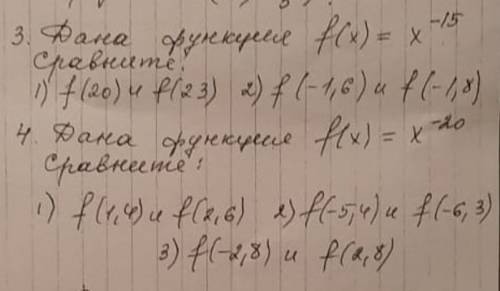 3. Дана функция f(x) = x^-15
Сравните:
1) f(20) и f(23) 2) f(-1,6) и f(-1,8)
4. Дана функция f(x) = x^-20
Сравните:
1) f(1,4) и f(2,6) 2) f(-5,4) и f(-6,3)
3) f(-2,8) и f(2,8)